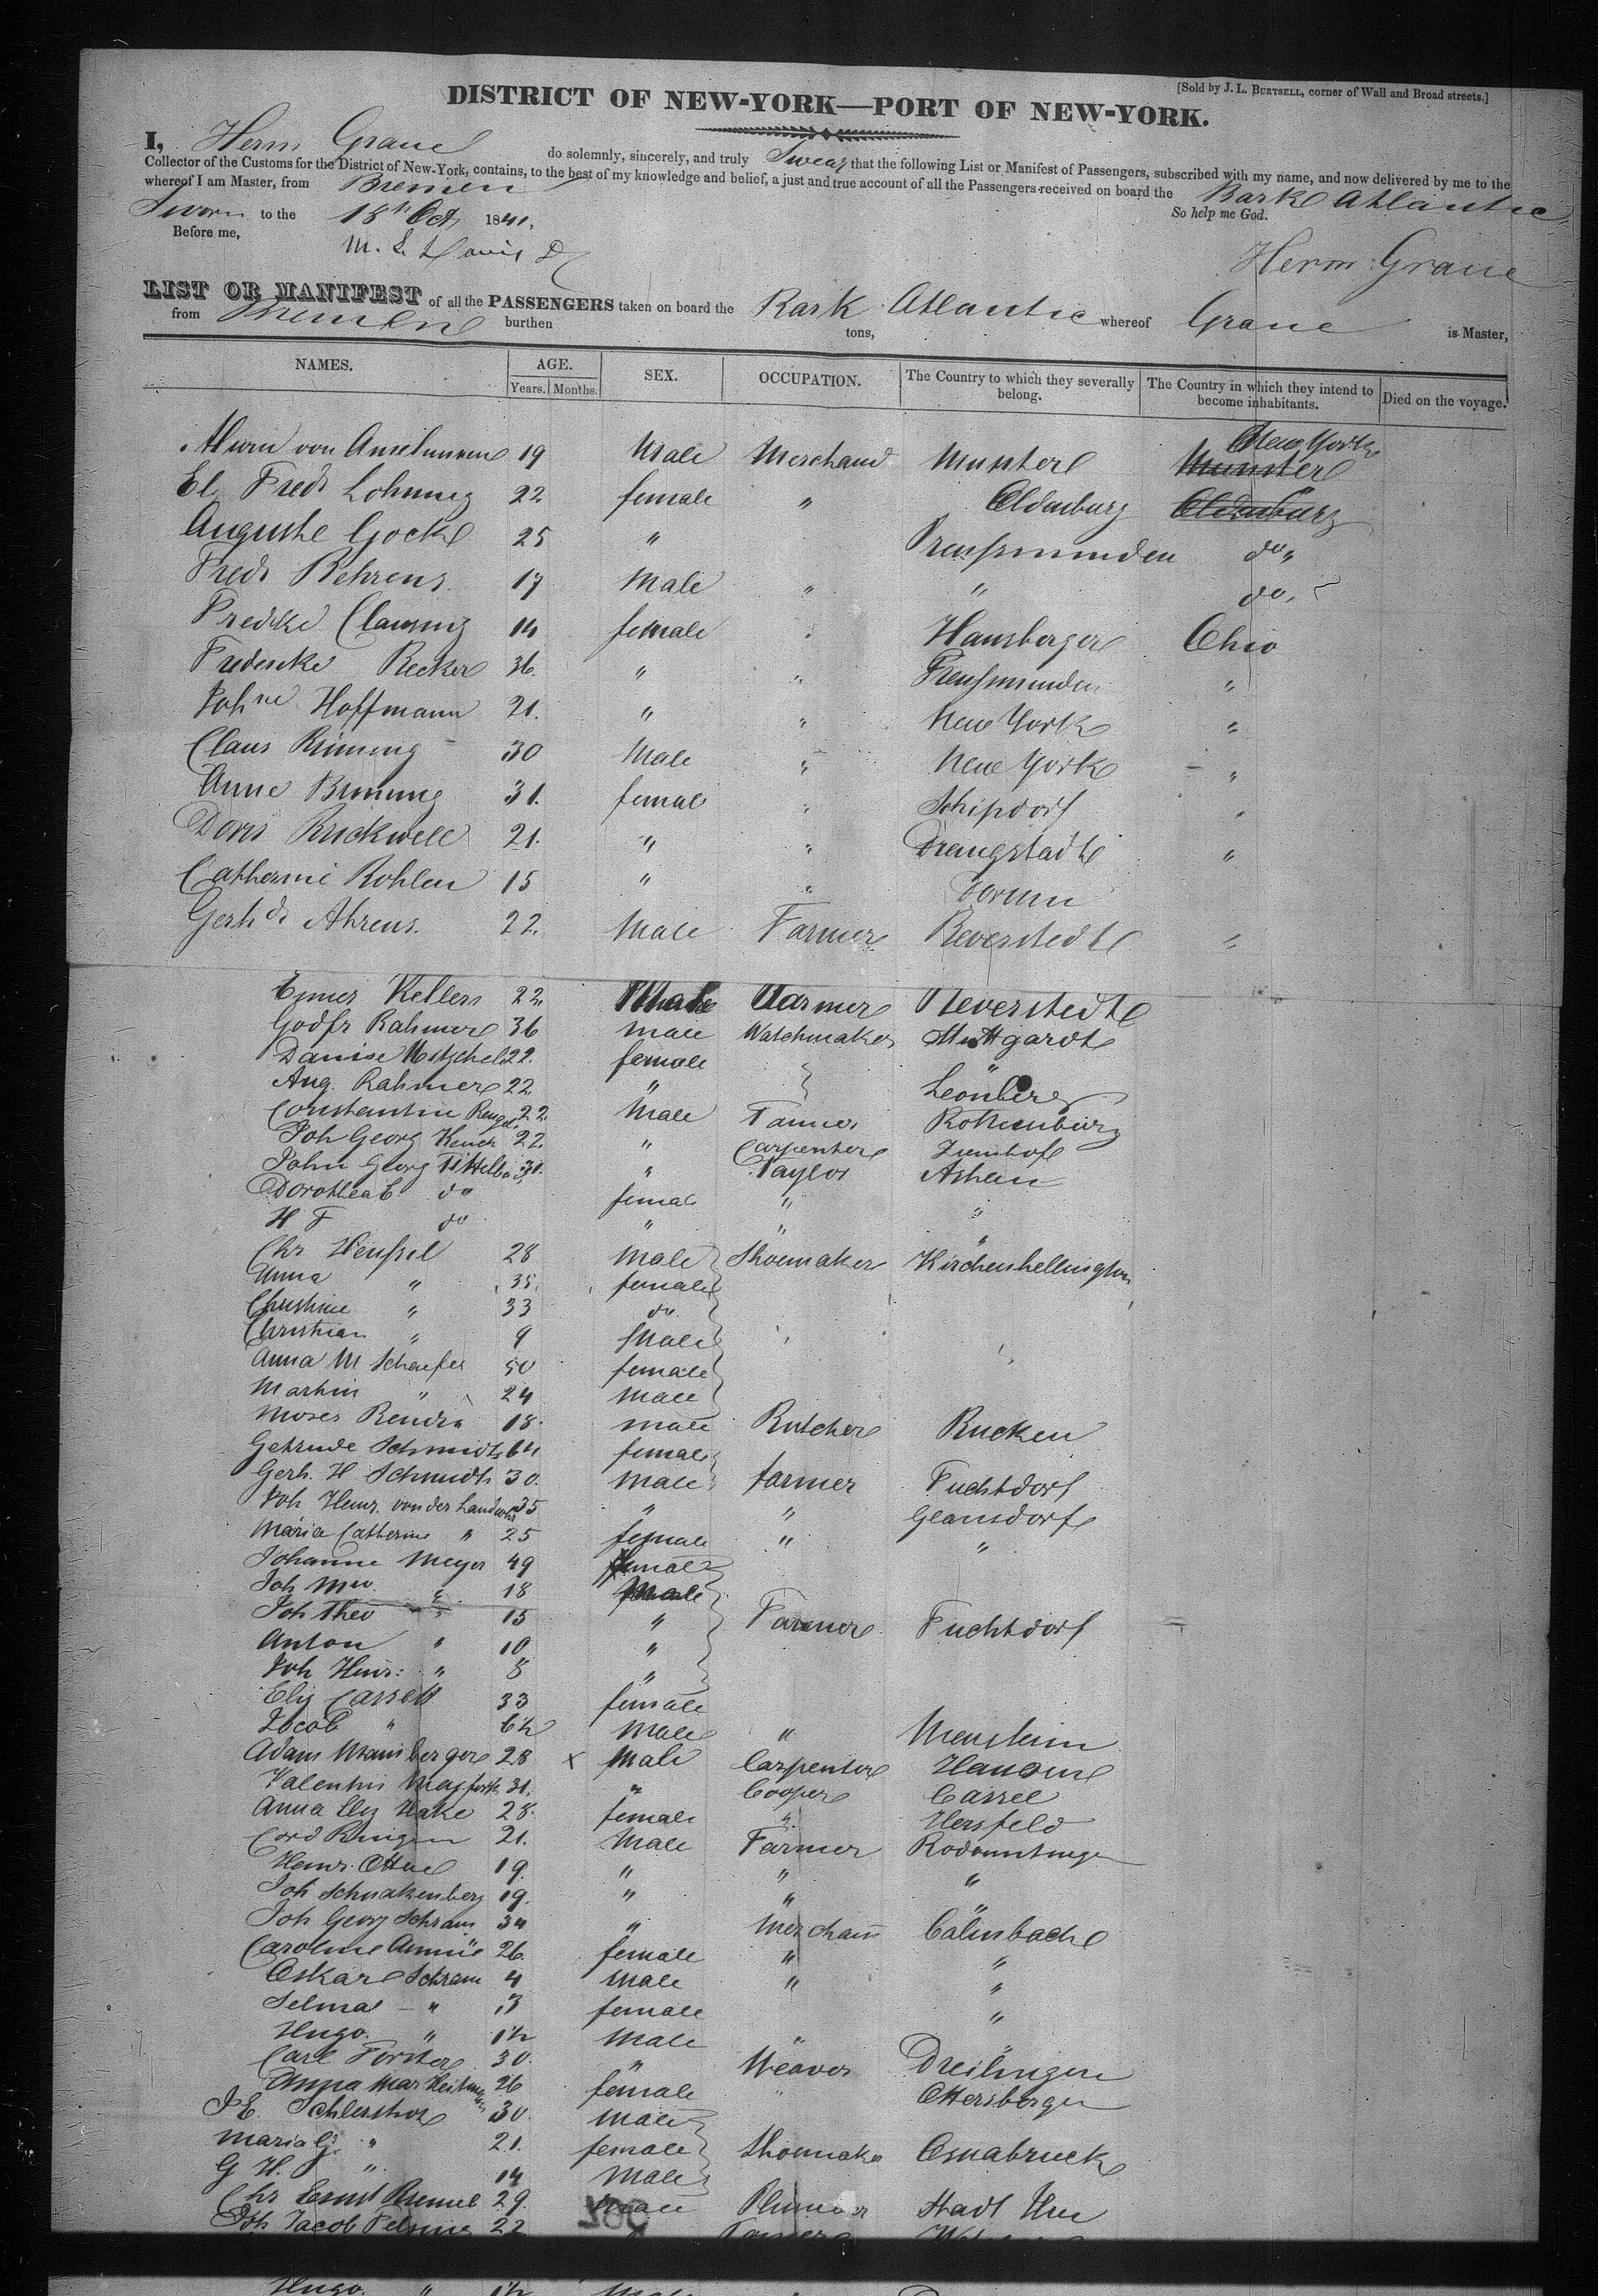 [Sold by J. L. BURTSELL, corner of Wall and Broad streets.]
DISTRICT OF NEW-YORK—PORT OF NEW-YORK.
I, Herm Graue do solemnly, sincerely, and truly Swear that the following List or Manifest of Passengers, subscribed with my name, and now delivered by me to the
Collector of the Customs for the District of New-York, contains, to the best of my knowledge and belief, a just and true account of all the Passengers received on board the Bark Atlantic
whereof I am Master, from Bremen So help me God.
Sworn to the 18th Oct 1841.
Before me, M. L. Davis
Herm: Graue
LIST OR MANIFEST of all the PASSENGERS taken on board the Bark Atlantic whereof Graue is Master,
from Bremen burthen tons,
NAMES. AGE. SEX. OCCUPATION. The Country to which they severally belong. The Country in which they intend to become inhabitants. Died on the voyage.
Years. Months.
von 19 Male Merchand Munster New York Munster
El. Fredr 22 female " Oldenburg Oldenburg
Auguste Gocke 25 " Preussminden do "
Fredr Behrens 17 Male " " do
Fredke Clausing 14 female " Hausberge Ohio
Frederike Becker 36. " " Preussminden "
Johne Hoffmann 21. " " New York "
Claus Bruning 30 Male " New York "
Anne Bruning 31. femal " Schipdorf "
Doris Buckwell 21. " " Drangstadt "
Catherine Rohlen 15 " " Dorum
Gerhd Ahrens. 22. Male Farmer Beverstedt "
Kellers 22. Male Farmer Beverstedt
Godfr Rahmer 36 male Watchmaker Stuttgardt
22. female
Aug. Rahmer 22 " Leonberg
Constantin 22. Male Tanner Rothenburg
Joh Georg 22. " Carpenter
John Georg 31. " Taylor
Dorothea E do femal " "
H F do " " "
Chr Heussel 28 Male Shoemaker
Anna " 35. female
Christine " 33 do
Christian " 9 Male
Anna M Schaefer 50 female
Martin " 24 Male
Moses 18. male Butcher Bucken
Getrude Schmidt 64 female
Gerh. H Schmidt 30. Male farmer Fuchtdorf
Joh Heinr. von der Landwehr 35 " " Glansdorf
Maria Catherine " 25 female " "
Johanne Meyer 49 female
Joh " 18 Male
Joh Theo " 15 " Farmer Fuchtdorf
Anton " 10 "
Joh Heinr: " 8 "
Eliz Cassell 33 female
Jacob " 6½ Male "
Adam 28 x Male Carpenter
Valentin 31. " Cooper Cassel
Anna Eliz Hake 28. female " Hersfeld
Cord Ringen 21. Male Farmer
Heinr. 19. " " "
Joh Schnakenberg 19. " " "
Joh Georg Schram 34 " Merchant
Caroline 26. female " "
Oskar Schram 4 Male " "
Selma - " 3 female "
Hugo. " 1½ Male "
Carl Forster 30. " Weaver Dreilingen
Anna Mar 26 female " Ottersbergen
J E. 30. Male
Maria G. " 21. female Shoemaker Osnabruck
G H. " 14 Male
Chr Ernst 29. Stadt
Joh Jacob 22
Hugo. " 1½